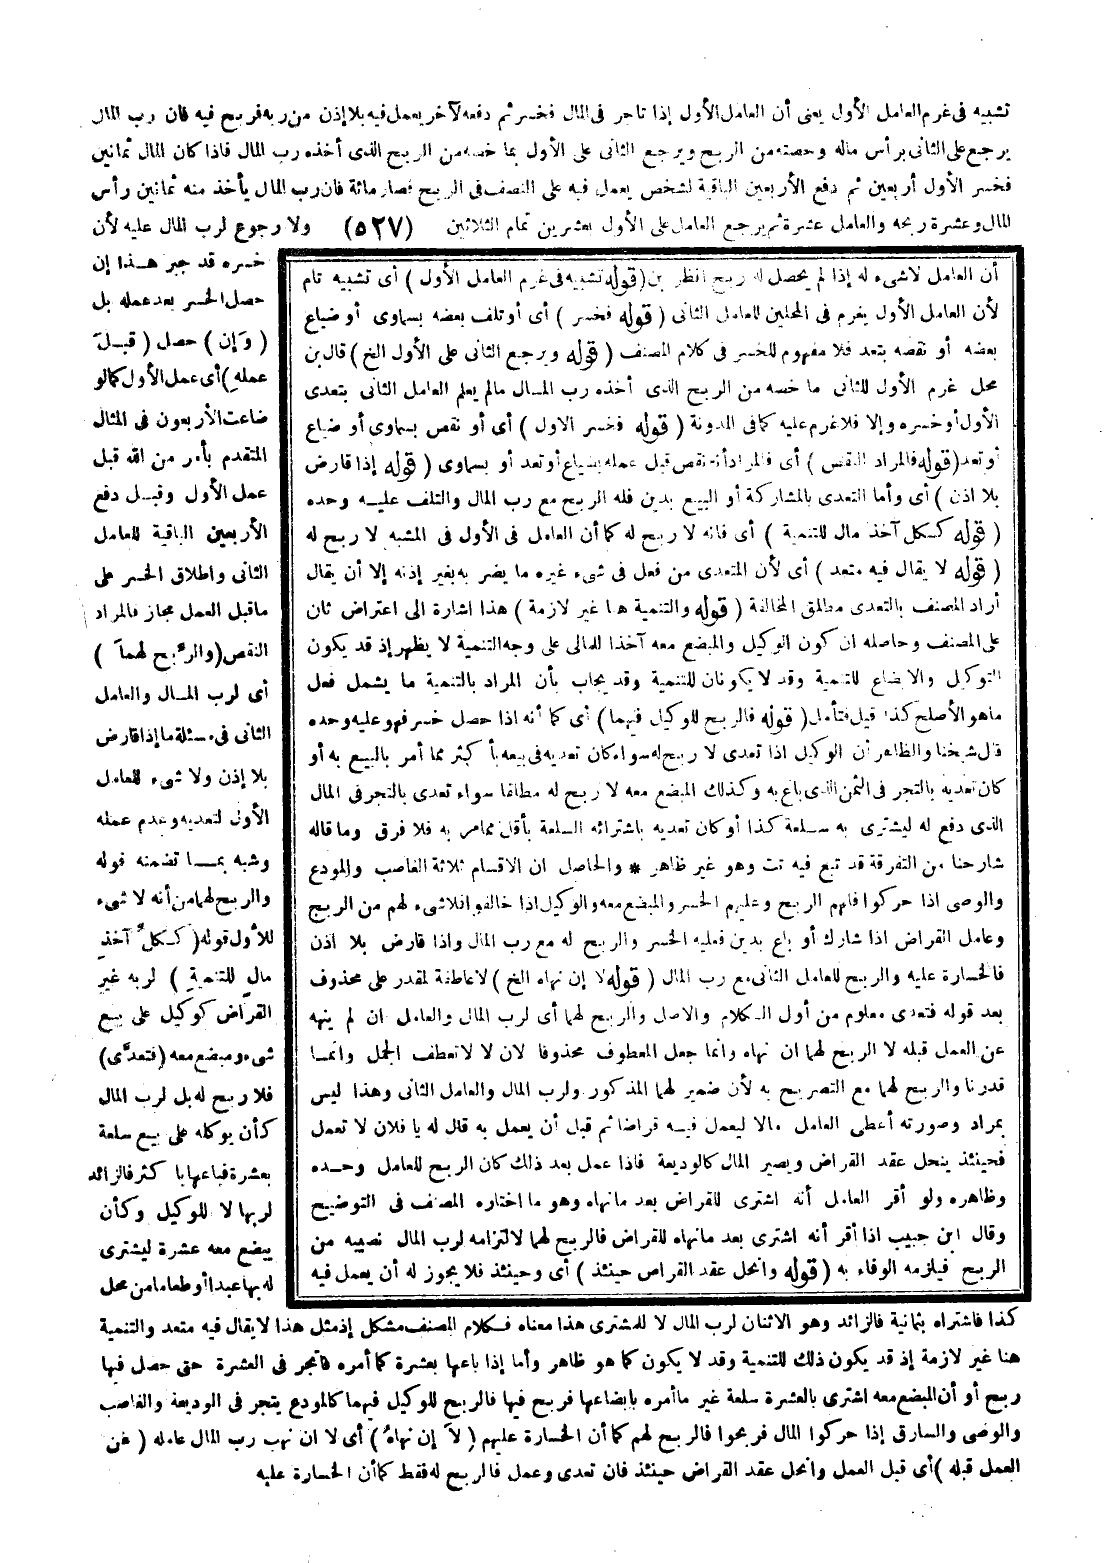 تشبيه فى غرم العامل الأول يعنى أن العامل الأول إذا تاجر فى المال فخسر ثم دفعه لآخر يعمل فيه بلا إذن من ربه فربح فيه فان رب المال
يرجع على الثانى برأس ماله وحصته من الربح ويرجع الثانى على الأول بما خصه من الربح الذى أخذه رب المال فاذا كان المال ثمانين
فخسر الأول أربعين ثم دفع الأربعين الباقية لشخص يعمل فيه على النصف فى الربح فصار مائة فان رب المال يأخذ منه ثمانين رأس
المال وعشرة ربحه والعامل عشرة ثم يرجع العامل على الأول بعشرين تمام الثلاثين (٥٢٧) ولا رجوع لرب المال عليه لأن
خسره قد جبر هذا إن
حصل الخسر بعد عمله بل
(وَإن) حصل (قبلَ
عمله) أى عمل الأول كما لو
ضاعت الأربعون فى المثال
المتقدم بأمر من الله قبل
عمل الأول وقبل دفع
الأربعين الباقية للعامل
الثانى واطلاق الخسر على
ماقبل العمل مجاز فالمراد
النقص (والربح لهما)
أى لرب المال والعامل
الثانى فى مسئلة ما إذا قارض
بلا إذن ولا شىء للعامل
الأول لتعديه وعدم عمله
وشبه بما تضمنه قوله
والربح لهما من أنه لا شىء
للأول قوله (ككلّ آخذِ
مال للتنمية) لربه غير
القراض كوكيل على بيع
شىء ومبضع معه (فتعدَّى)
فلا ربح له بل لرب المال
كأن يوكله على بيع سلعة
بعشرة فباعها بأكثر فالزائد
لربها لا للوكيل وكأن
يبضع معه عشرة ليشترى
له بها عبدا أو طعاما من محل
أن العامل لاشىء له إذا لم يحصل له ربح انظر بن (قوله تشبيه فى غرم العامل الأول) أى تشبيه تام
لأن العامل الأول يغرم فى المحلين للعامل الثانى (قوله فخسر) أى أو تلف بعضه بسماوى أو ضياع
بعضه أو نقصه بتعد فلا مفهوم للخسر فى كلام المصنف (قوله ويرجع الثانى على الأول الخ) قال بن
محل غرم الأول للثانى ما خصه من الربح الذى أخذه رب المال مالم يعلم العامل الثانى بتعدى
الأول أو خسره وإلا فلا غرم عليه كما فى المدونة (قوله فخسر الاول) أى أو نقص بسماوى أو ضياع
أو تعد (قوله فالمراد النقص) أى فالمراد أنه نقص قبل عمله بضياع أو تعد أو بسماوى (قوله إذا قارض
بلا اذن) أى وأما التعدى بالمشاركة أو البيع بدين فله الربح مع رب المال والتلف عليه وحده
(قوله ككل آخذ مال للتنمية) أى فانه لا ربح له كما أن العامل فى الأول فى المشبه لا ربح له
(قوله لا يقال فيه متعد) أى لأن المتعدى من فعل فى شىء غيره ما يضر به بغير إذنه إلا أن يقال
أراد المصنف بالتعدى مطلق المخالفة (قوله والتنمية هنا غير لازمة) هذا اشارة الى اعتراض ثان
على المصنف وحاصله ان كون الوكيل والمبضع معه آخذا للمال على وجه التنمية لا يظهر إذ قد يكون
التوكيل والابضاع للتنمية وقد لا يكونان للتنمية وقد يجاب بأن المراد بالتنمية ما يشمل فعل
ماهو الأصلح كذا قيل فتأمل (قوله فالربح للوكيل فيهما) أى كما أنه اذا حصل خسر فهو عليه وحده
قال شيخنا والظاهر أن الوكيل اذا تعدى لا ربح له سواء كان تعديه فى بيعه بأكثر مما أمر بالبيع به أو
كان تعديه بالتجر فى الثمن الذى باع به وكذلك المبضع معه لا ربح له مطلقا سواء تعدى بالتجر فى المال
الذى دفع له ليشترى به سلعة كذا أو كان تعديه باشترائه السلعة بأقل مما أمر به فلا فرق وما قاله
شارحنا من التفرقة قد تبع فيه تت وهو غير ظاهر * والحاصل ان الاقسام ثلاثة الغاصب والمودع
والوصى اذا حركوا فلهم الربح وعليهم الخسر والمبضع معه والوكيل اذا خالفوا فلا شىء لهم من الربح
وعامل القراض اذا شارك أو باع بدين فعليه الخسر والربح له مع رب المال واذا قارض بلا اذن
فالخسارة عليه والربح للعامل الثانى مع رب المال (قوله لا إن نهاه الخ) لا عاطفة لمقدر على محذوف
بعد قوله فتعدى معلوم من أول الكلام والاصل والربح لهما أى لرب المال والعامل ان لم ينهه
عن العمل قبله لا الربح لهما ان نهاه وانما جعل المعطوف محذوفا لان لا لا تعطف الجمل وانما
قدرنا والربح لهما مع التصريح به لأن ضمير لهما المذكور ولرب المال والعامل الثانى وهذا ليس
بمراد وصورته أعطى العامل مالا ليعمل فيه قراضا ثم قبل أن يعمل به قال له يا فلان لا تعمل
فحينئذ ينحل عقد القراض ويصير المال كالوديعة فاذا عمل بعد ذلك كان الربح للعامل وحده
وظاهره ولو أقر العامل أنه اشترى للقراض بعد مانهاه وهو ما اختاره المصنف فى التوضيح
وقال ابن حبيب اذا أقر أنه اشترى بعد مانهاه للقراض فالربح لهما لالتزامه لرب المال نصيبه من
الربح فيلزمه الوفاء به (قوله وانحل عقد القراض حينئذ) أى وحينئذ فلا يجوز له أن يعمل فيه
كذا فاشتراه بثمانية فالزائد وهو الاثنان لرب المال لا للمشترى هذا معناه فكلام المصنف مشكل إذ مثل هذا لا يقال فيه متعد والتنمية
هنا غير لازمة إذ قد يكون ذلك للتنمية وقد لا يكون كما هو ظاهر وأما إذا باعها بعشرة كما أمره فاتجر فى العشرة حتى حصل فيها
ربح أو أن المبضع معه اشترى بالعشرة سلعة غير ماأمره بإبضاعها فربح فيها فالربح للوكيل فيهما كالمودع يتجر فى الوديعة والغاصب
والوصى والسارق إذا حركوا المال فربحوا فالربح لهم كما أن الخسارة عليهم (لاَ إن نهاهُ) أى لا ان نهى رب المال عامله (عن
العمل قبله) أى قبل العمل وانحل عقد القراض حينئذ فان تعدى وعمل فالربح له فقط كما أن الخسارة عليه